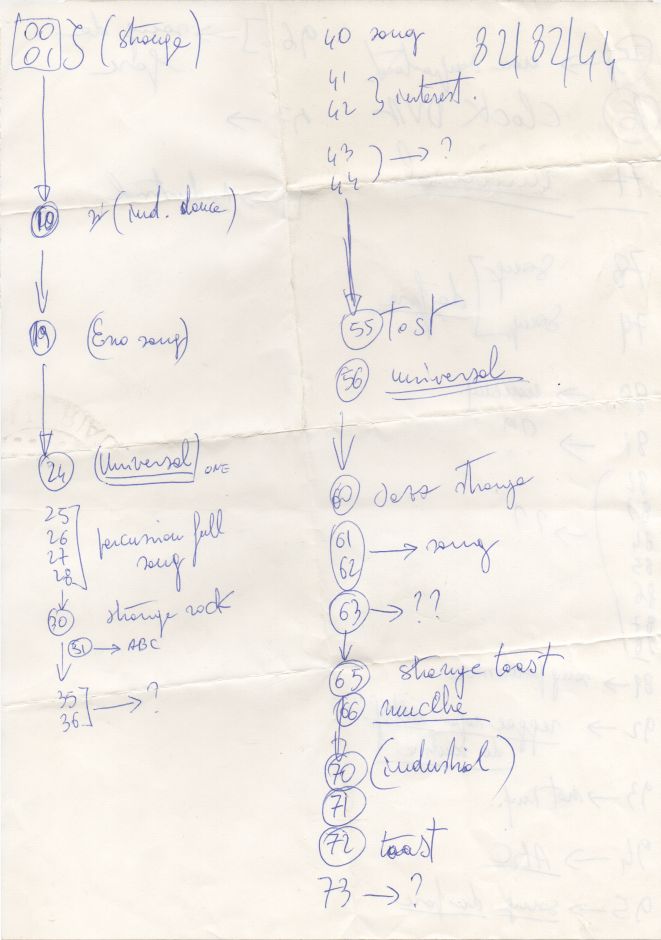 00
01 } (strange)
10 (ind. dance)
19 (Eno song)
24 (universal) ONE
25
26
27
28 ] percussion full song
30 strange rock
31 → ABC
35
36 ] → ?
40 song
82/82/44
41
42 } interest.
43
44 ) → ?
55 tost
56 universal
60 strange
61
62 → song
63 → ??
65 strange toast
66
70 (industrial)
71
72 toast
73 → ?